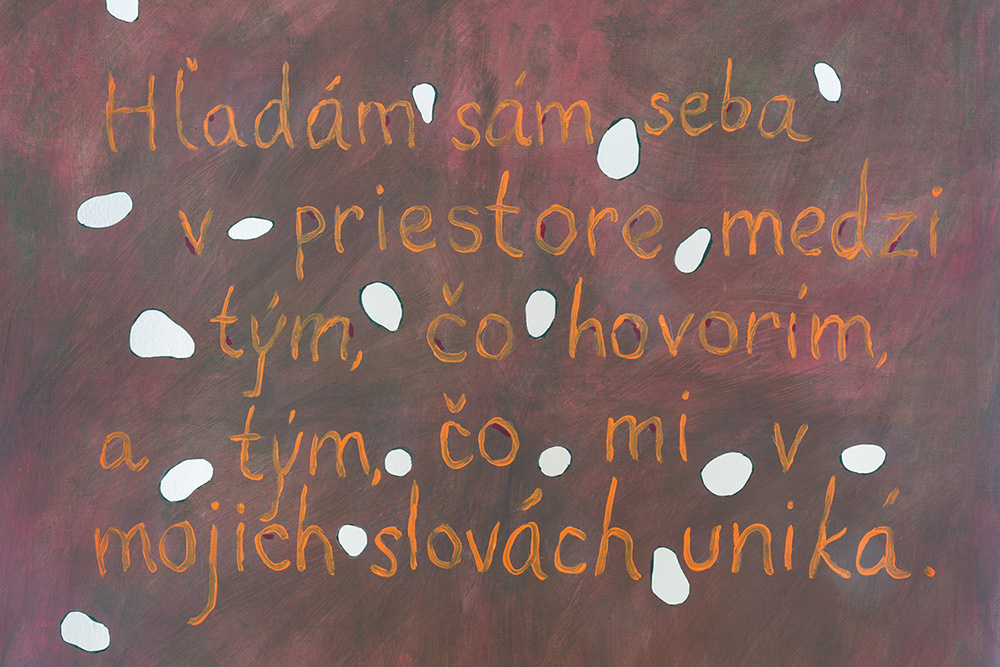 Hľadám sám seba
v priestore medzi
tým, čo hovorím,
a tým, čo mi v
mojich slovách uniká.